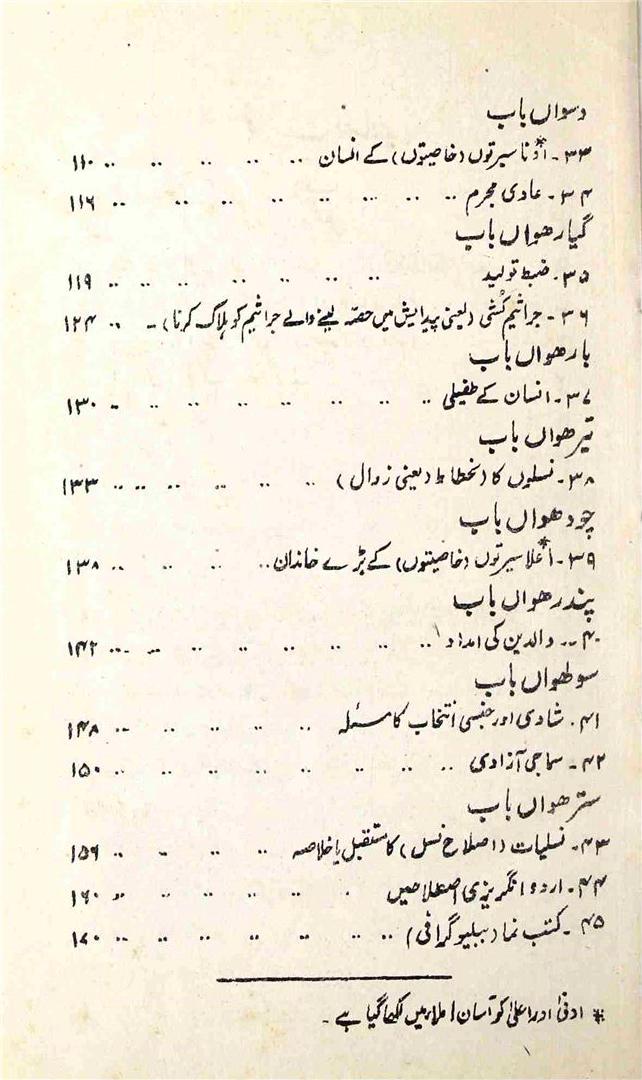 دسواں باب
۳۳۔ اَدنا* سیرتوں (خاصیتوں) کے انسان .. .. .. .. .. ۱۱۰
۳۴۔ عادی مجرم .. .. .. .. .. .. .. .. ۱۱۶
گیارھواں باب
۳۵۔ ضبط تولید .. .. .. .. .. .. .. .. ۱۱۹
۳۶۔ جراثیم کُشی (یعنی پیدایش میں حصّہ لینے والے جراثیم کو ہلاک کرنا) ۔ .. ۱۲۴
بارھواں باب
۳۷۔ انسان کے طفیلی .. .. .. .. .. .. .. .. ۱۳۰
تیرھواں باب
۳۸۔ نسلوں کا انحطاط (یعنی زوال) .. .. .. .. .. .. .. ۱۳۳
چودھواں باب
۳۹۔ اَعلا* سیرتوں (خاصیتوں) کے بڑے خاندان .. .. .. .. .. ۱۳۸
پندرھواں باب
۴۰۔ والدین کی امداد .. .. .. .. .. .. .. .. ۱۴۲
سولھواں باب
۴۱۔ شادی اور جنسی انتخاب کا مسئلہ .. .. .. .. .. .. ۱۴۸
۴۲۔ سماجی آزادی .. .. .. .. .. .. .. .. ۱۵۰
سترھواں باب
۴۳۔ نسلیات (اصلاح نسل) کا مستقبل یا خلاصہ .. .. .. .. .. ۱۵۶
۴۴۔ اردو انگریزی اصطلاحیں . .. .. .. .. .. ۱۶۰
۴۵۔ کتب نما (ببلیوگرافی) .. .. .. .. .. .. .. ۱۷۰
* ادنیٰ اور اعلیٰ کو آسان املا میں لکھا گیا ہے۔